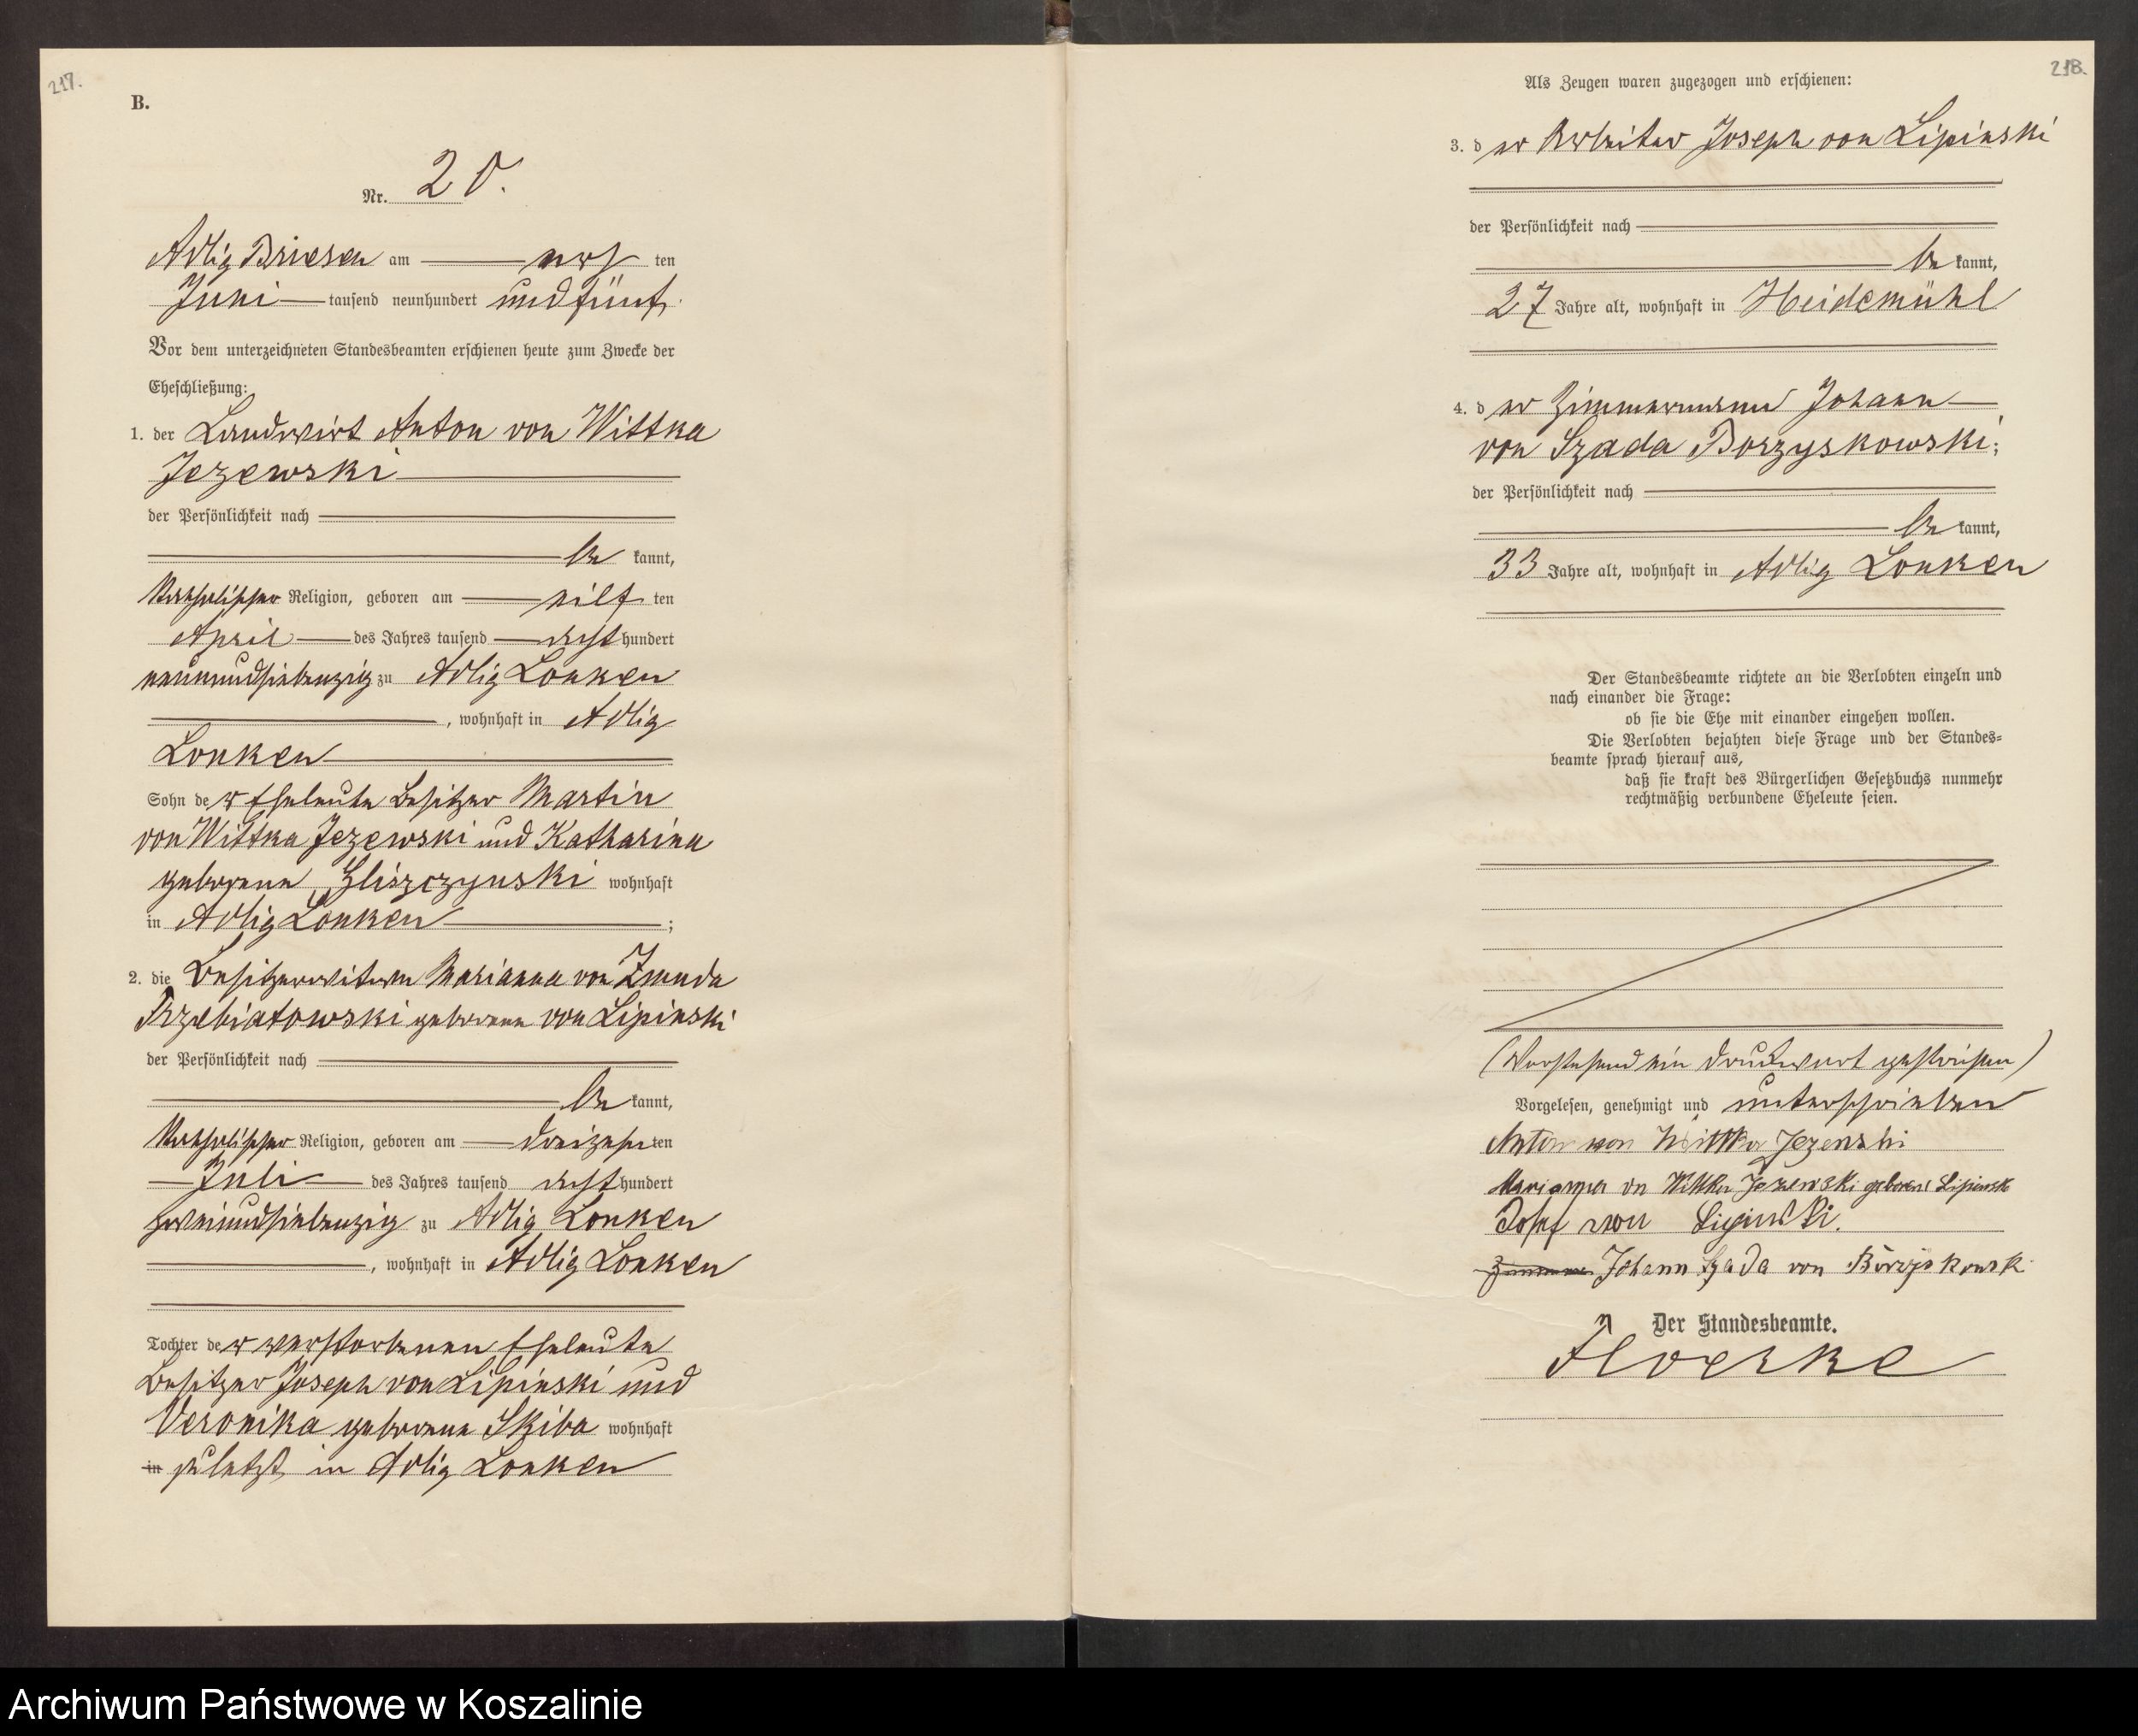 217.
B.
Nr. 20.
Adlig Briesen am ersten
Juni tausend neunhundert und fünf.
Vor dem unterzeichneten Standesbeamten erschienen heute zum Zwecke der
Eheschließung:
1. der Landwirt Anton von Wittka
Jezewski
der Persönlichkeit nach
be kannt,
katholischer Religion, geboren am elf ten
April des Jahres tausend acht hundert
neunundsiebenzig zu Adlig Lonken
, wohnhaft in Adlig
Lonken
Sohn der Eheleute Besitzer Martin
von Wittka Jezewski und Katharina
geborene Gliszczynski wohnhaft
in Adlig Lonken ;
2. die Besitzerwitwe Marianna von Zmuda
Trzebiatowski geborene von Lipinski
der Persönlichkeit nach
be kannt,
katholischer Religion, geboren am dreizehnten
Juli des Jahres tausend acht hundert
zweiundsiebenzig zu Adlig Lonken
, wohnhaft in Adlig Lonken
Tochter der verstorbenen Eheleute
Besitzer Joseph von Lipinski und
Veronika geborene Skiba wohnhaft
in zuletzt in Adlig Lonken
218.
Als Zeugen waren zugezogen und erschienen:
3. d er Arbeiter Joseph von Lipinski
der Persönlichkeit nach
be kannt,
27 Jahre alt, wohnhaft in Heidemühl
4. d er Zimmermann Johann
von Szada Borzyskowski;
der Persönlichkeit nach
be kannt,
33 Jahre alt, wohnhaft in Adlig Lonken
Der Standesbeamte richtete an die Verlobten einzeln und
nach einander die Frage:
ob sie die Ehe mit einander eingehen wollen.
Die Verlobten bejahten diese Frage und der Standes-
beamte sprach hierauf aus,
daß sie kraft des Bürgerlichen Gesetzbuchs nunmehr
rechtmäßig verbundene Eheleute seien.
(Vorstehend ein Druckwort gestrichen)
Vorgelesen, genehmigt und unterschrieben
Anton von Wittka Jezewski
Marianna von Wittka Jezewski geborene Lipinski
Josef von Lipinski.
Johann Szada von Borzyskowski
Der Standesbeamte.
Archiwum Państwowe w Koszalinie